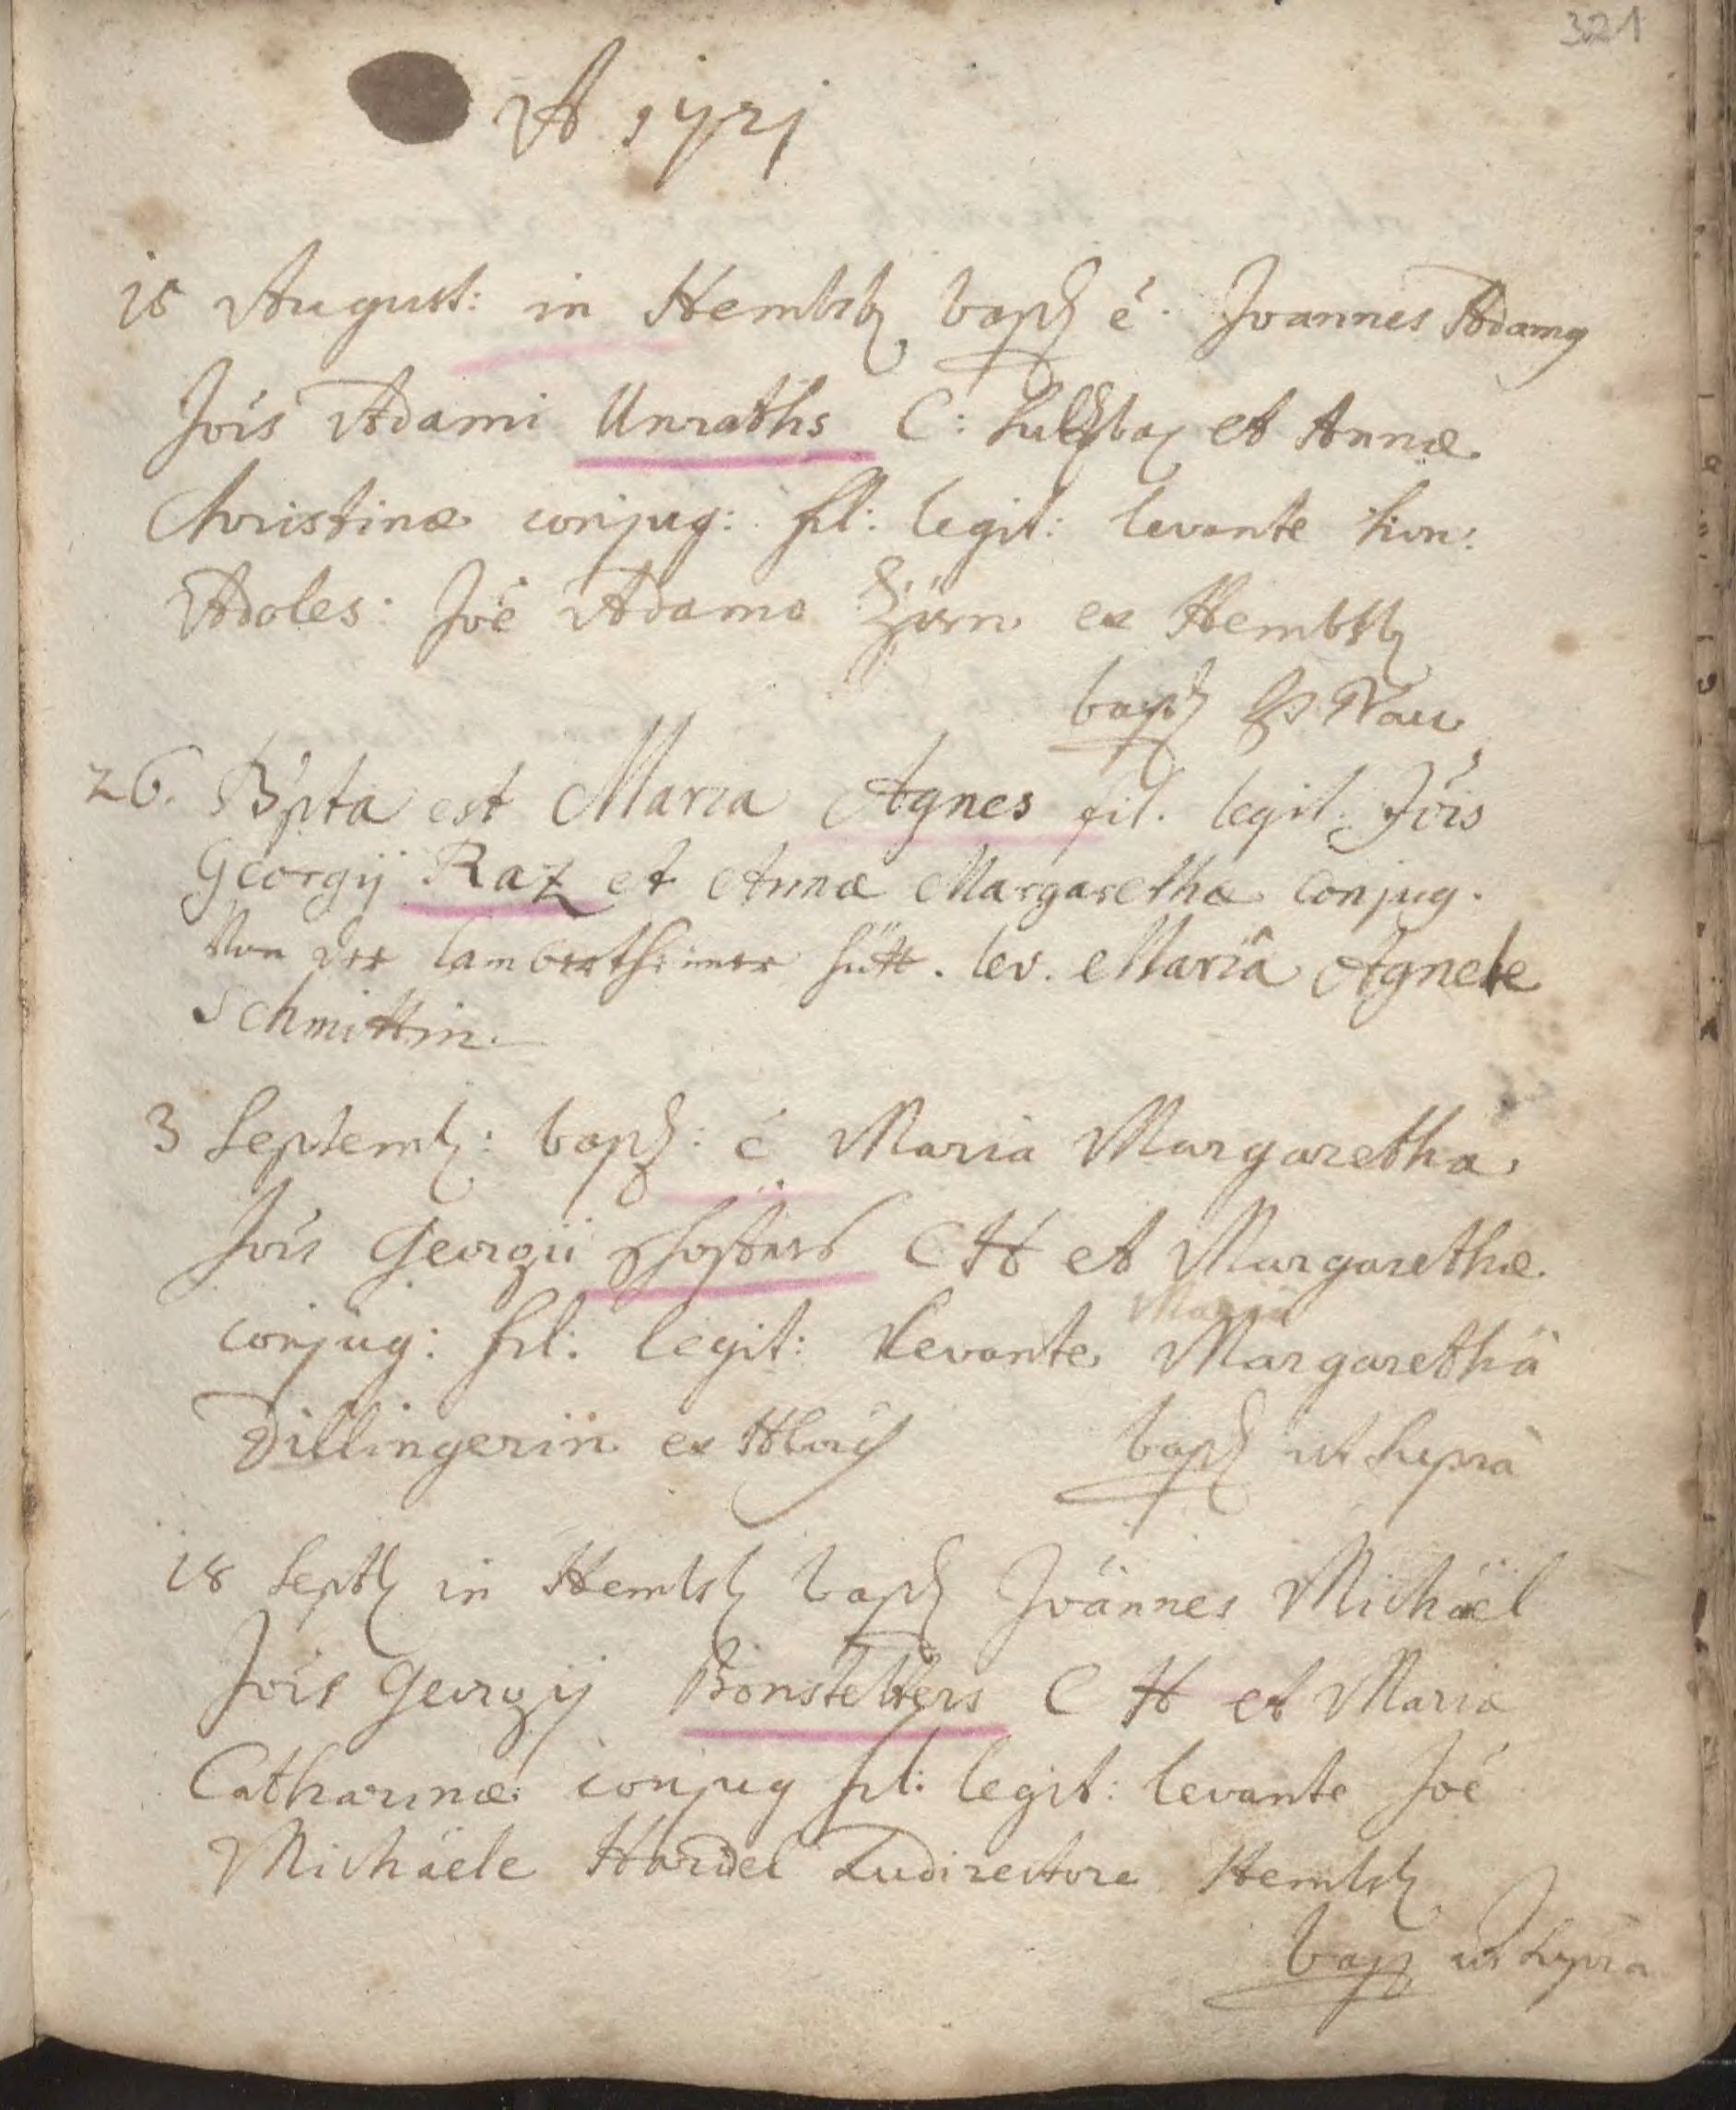 321
A 1721
15 August: in Hembsb bapt é. Joannes Adamg
Jois Adami Unraths C: Sulzbac et Annæ
Christinæ conjug: fil: legit: levante hon:
Adoles: Joé Adamo Zörn ex Hembsb
bapt P. Nau
26. B'pta est Maria Agnes fil. legit. Jois
Georgij Raz et Annæ Margarethæ conjug.
Von der lambertheimer hütt. lev. Mariâ Agnete
Schmittin.
3 Septemb: bapt: é Maria Margaretha
Jois Georgii C H et Margarethæ
Maria
conjug: fil: legit: levante Margarethâ
Dillingerin ex
bapt ut supra
18 Septb in Hembsb bapt Joännes Michäel
Jois Georgij Bonstetters C H et Mariæ
Catharinæ conjug fil: legit: levante Joé
Michäele Hardel Ludirectore Hembsb
bapt ut supra